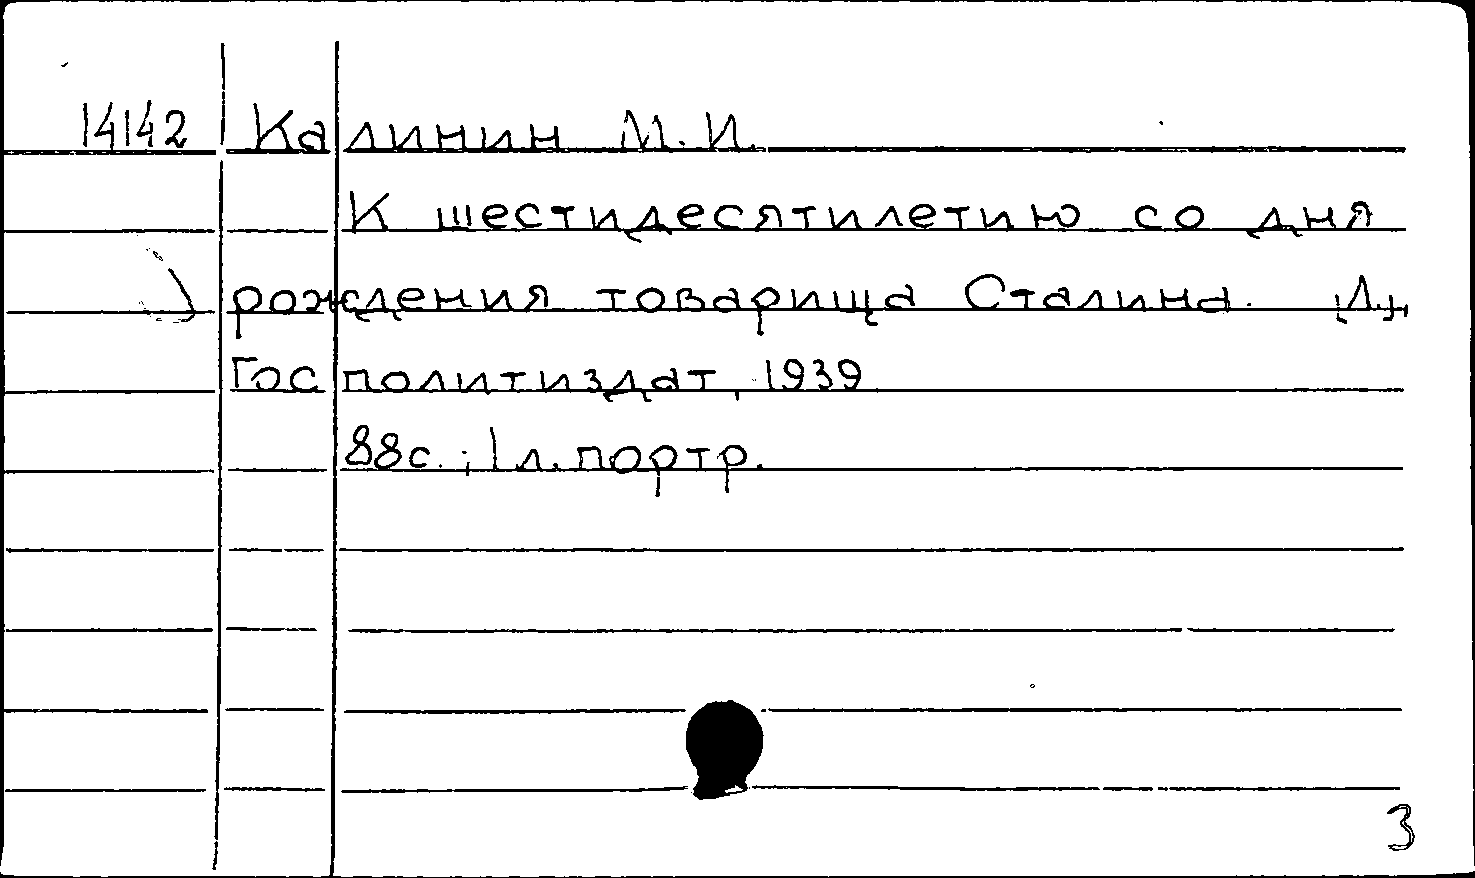 14142 Калинин М.И.
К шестидесятилетию со дня
рождения товарища Сталина. Л.,
Госполитиздат, 1939
88с.; 1 л. портр.
3